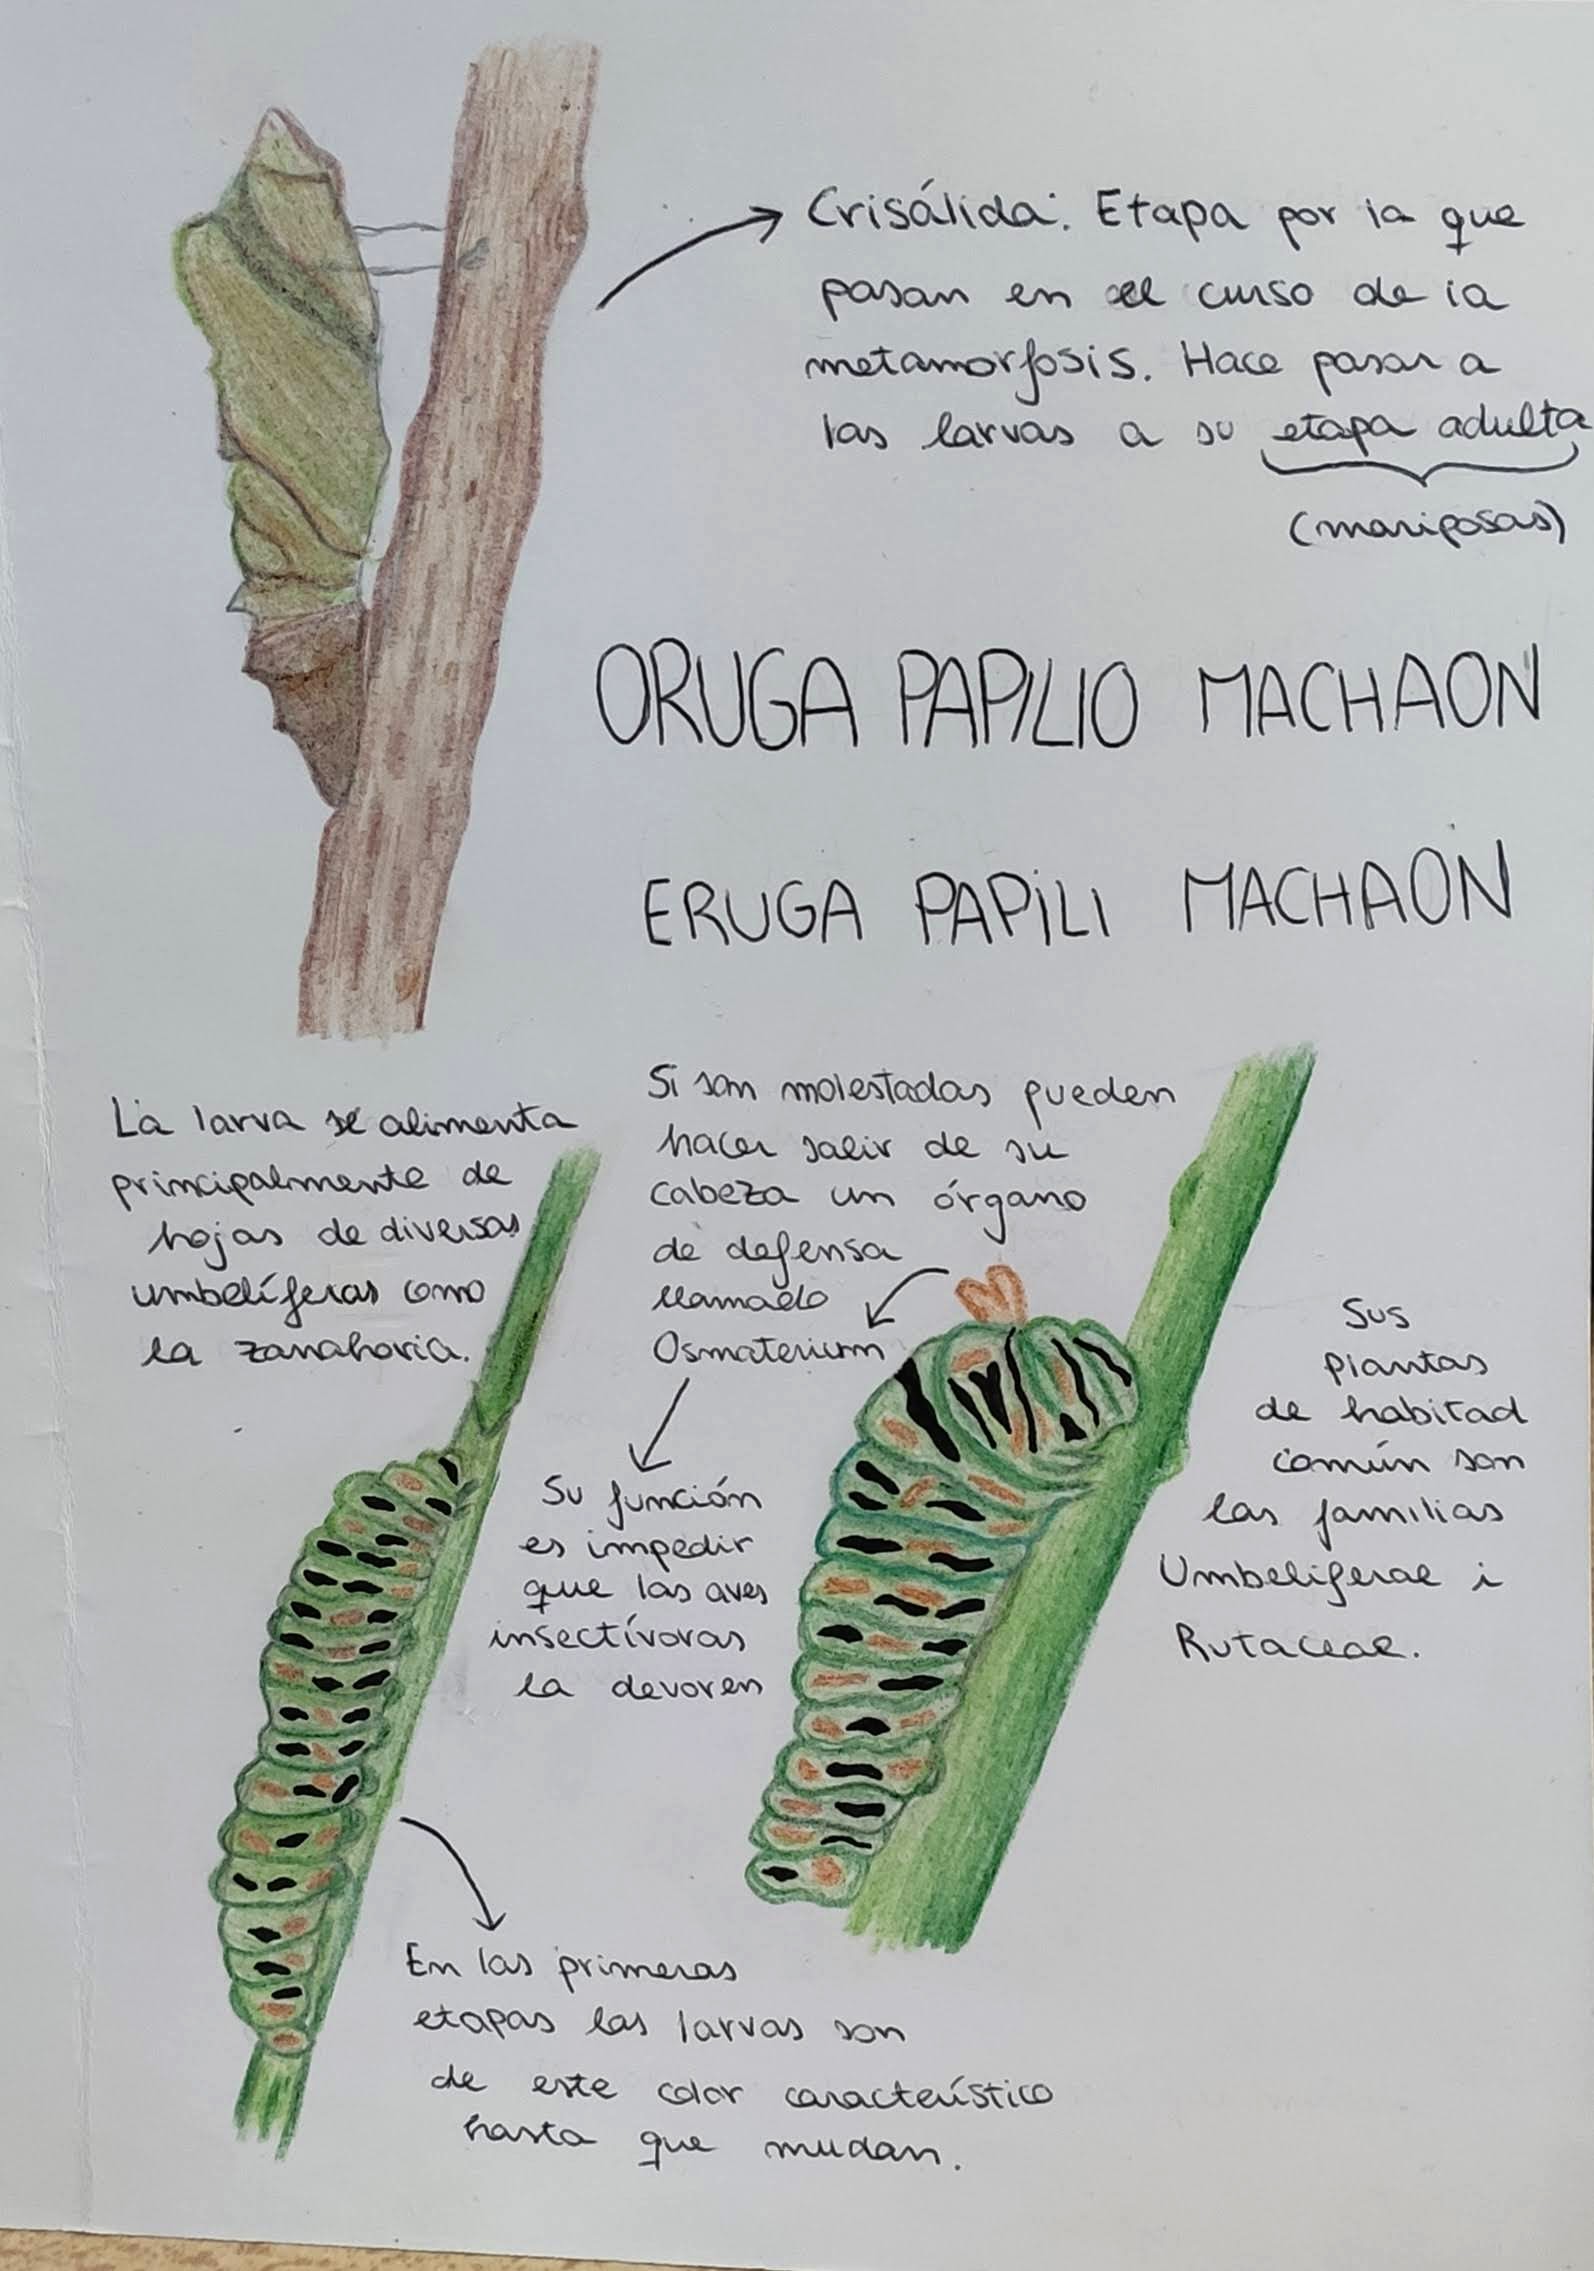 Crisálida: Etapa por la que
pasan en el curso de la
metamorfosis. Hace pasar a
las larvas a su etapa adulta
(mariposas)
ORUGA PAPILIO MACHAON
ERUGA PAPILI MACHAON
La larva se alimenta
principalmente de
hojas de diversas
umbelíferas como
la zanahoria.
Si son molestadas pueden
hacer salir de su
cabeza un órgano
de defensa
llamado
Osmaterium
Su función
es impedir
que las aves
insectívoras
la devoren
Sus
plantas
de habitad
común son
las familias
Umbeliferae i
Rutaceae.
En las primeras
etapas las larvas son
de este color característico
hasta que mudan.